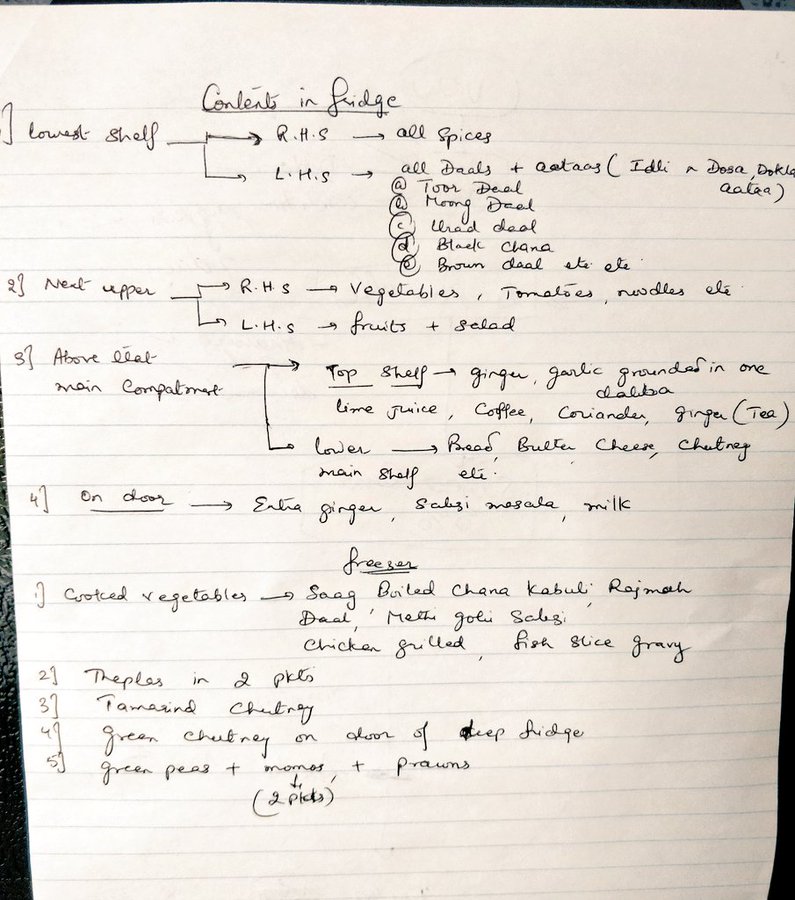 Contents in fridge
1] lowest shelf → R.H.S → all spices
L.H.S → all Daals + aataas ( Idli n Dosa, Dokla
aataa)
(a) Toor Daal
(b) Moong Daal
(c) Urad daal
(d) Black Chana
(e) Brown daal etc etc
2] Next upper → R.H.S → Vegetables, Tomatoes, noodles etc
L.H.S → fruits + salad
3] Above that → Top shelf → ginger, garlic grounded in one
main Compartment dabba
lime juice, Coffee, Coriander, ginger (Tea)
lower → Bread, Butter, Cheese, Chutney
main shelf etc.
4] On door → Extra ginger, Sabzi masala, milk
freezer
1] Cooked vegetables → Saag Boiled Chana Kabuli, Rajmah
Daal, Methi gobi Sabzi
Chicken grilled, fish slice gravy
2] Theplas in 2 pkts
3] Tamarind Chutney
4] green chutney on door of deep fridge
5] green peas + momos, + prawns
↓
(2 pkts)